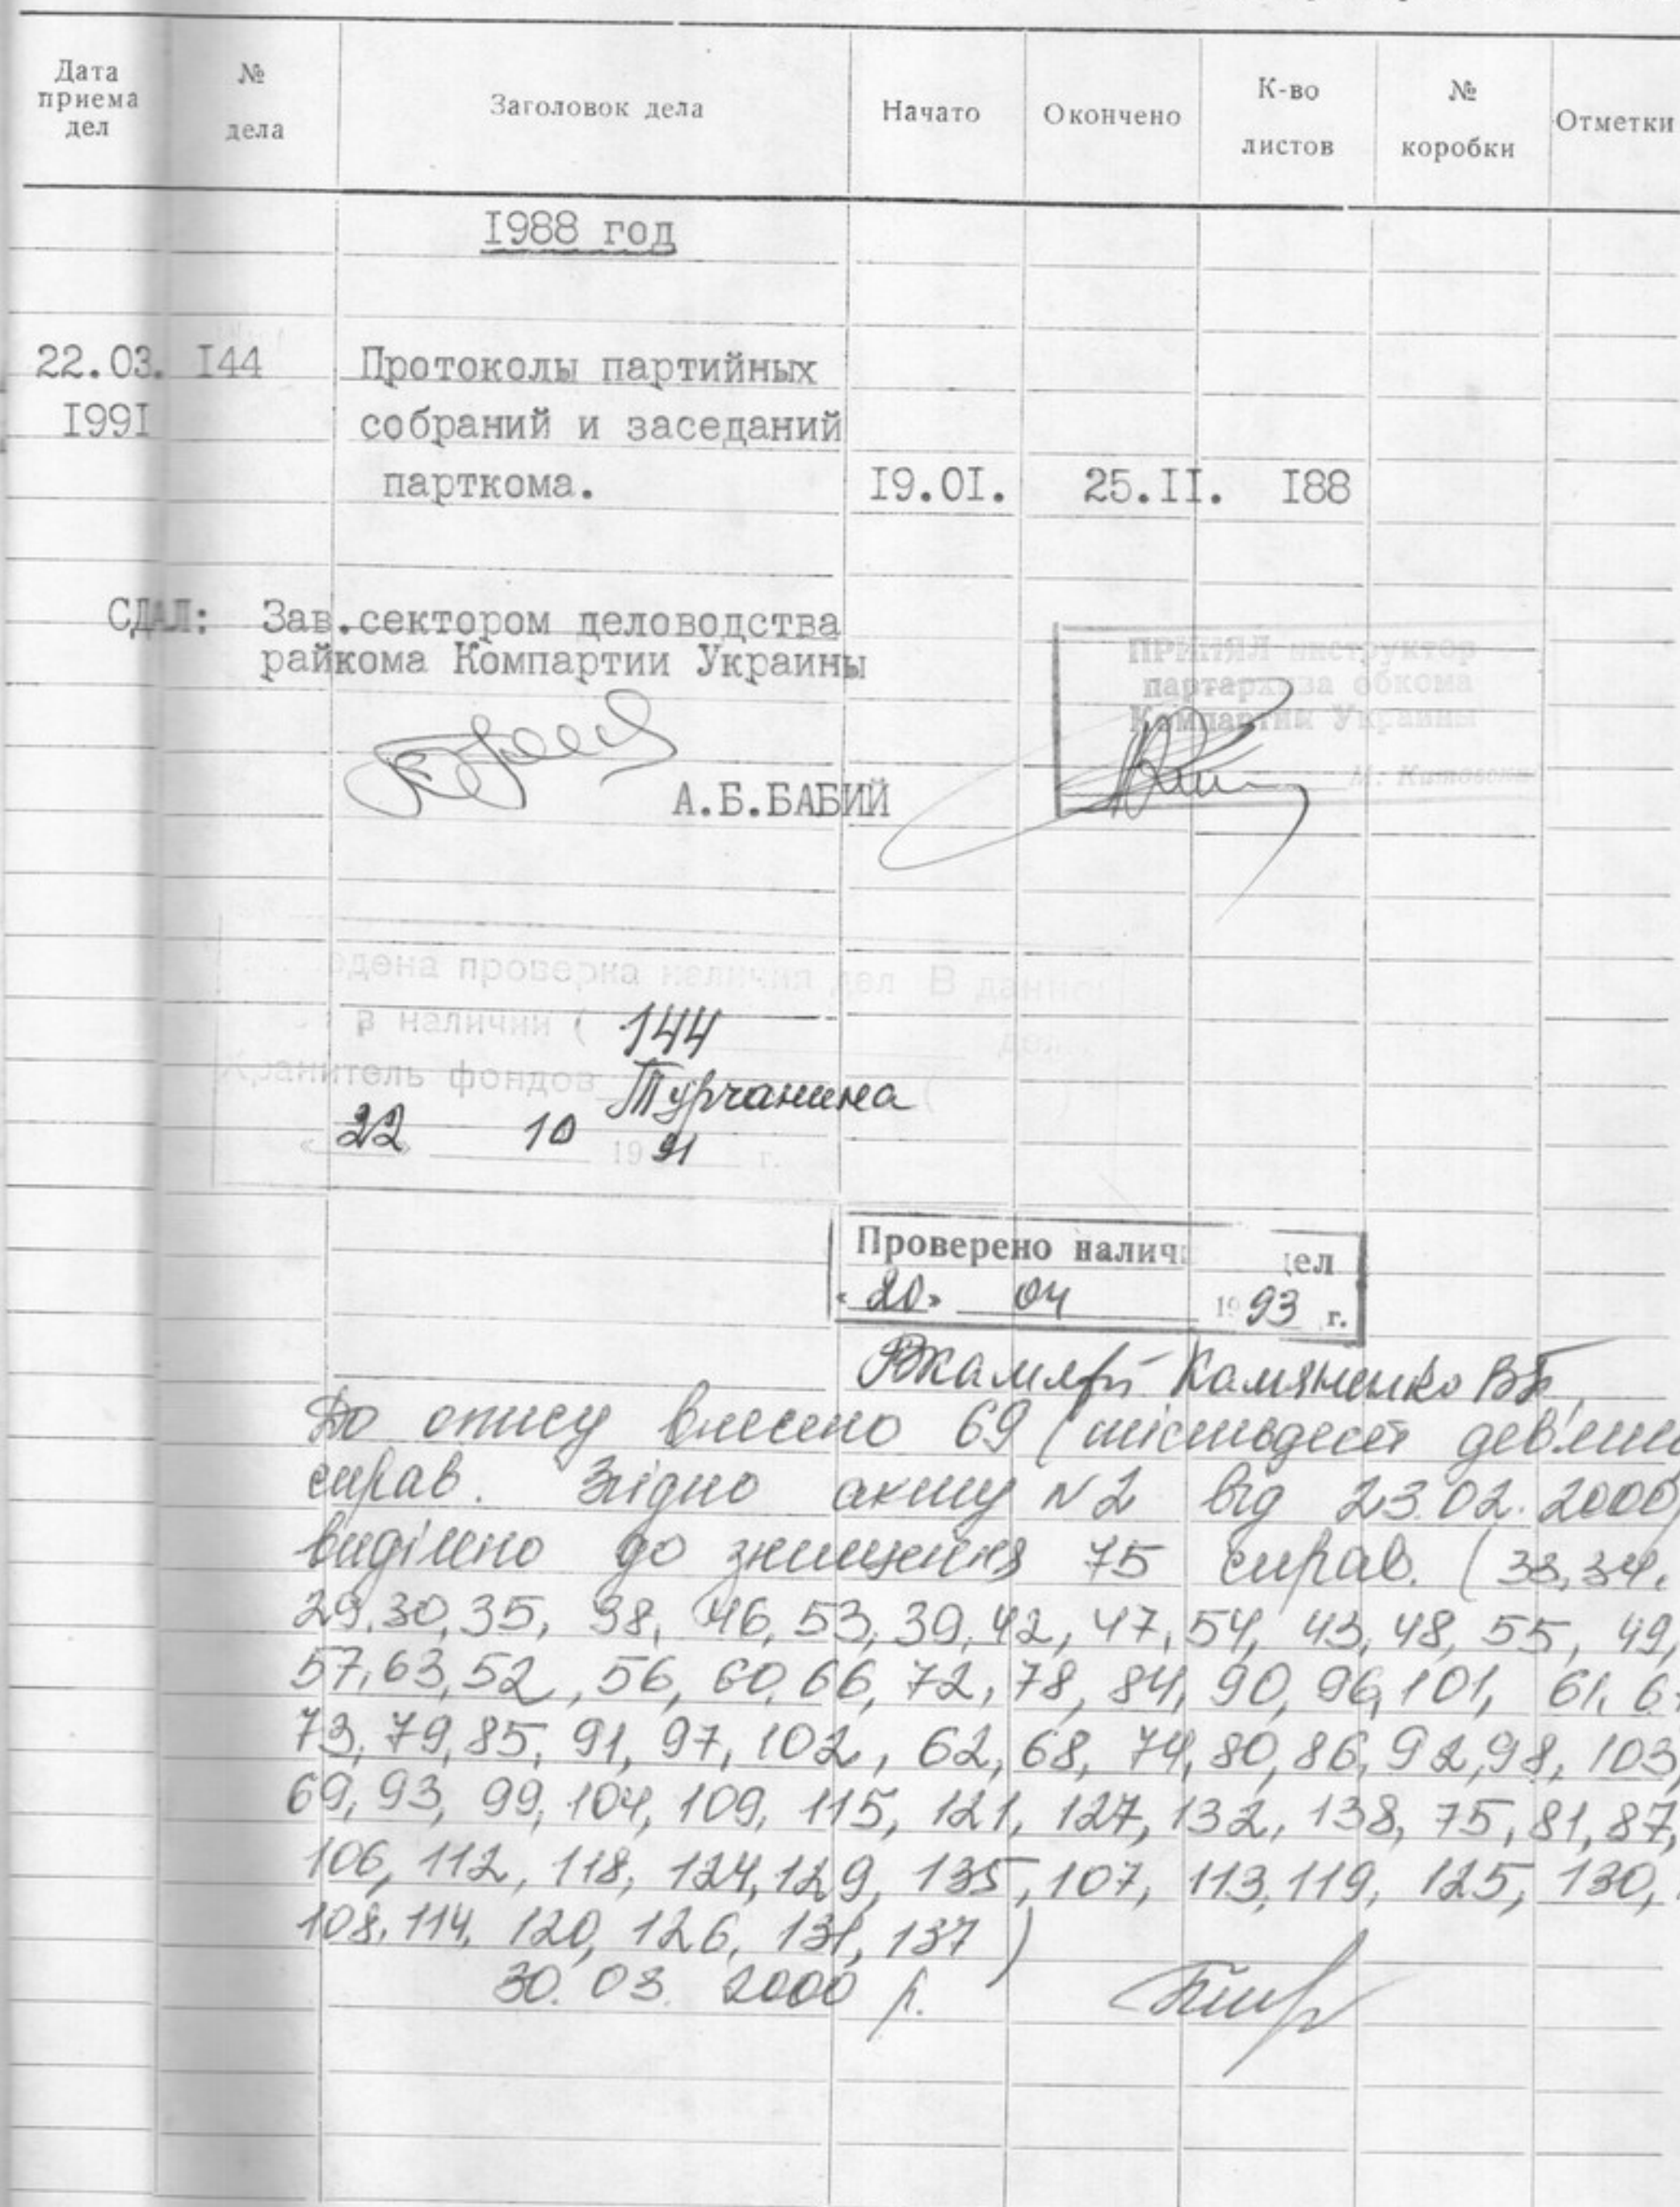 Дата приема дел № дела Заголовок дела Начато Окончено К-во листов № коробки Отметки
I988 год
22.03. I44 Протоколы партийных
I99I собраний и заседаний
парткома. I9.0I. 25.II. I88
СДАЛ: Зав.сектором деловодства
райкома Компартии Украины
А.Б.БАБИЙ
ПРИНЯЛ инструктор
партархива обкома
Компартии Украины
едена проверка наличия дел В данно
в наличии ( 144
Хранитель фондов Турчанина
« 22 » 10 19 91 г.
Проверено налич дел
« 20 » 04 1993 г.
Камяненко ВБ
До опису внесено 69 (шістьдесят дев'ять
справ. Згідно акту N2 від 23.02.2000
виділено до знищення 75 справ. (33,34,
29,30,35, 38, 46,53,39,42, 47,54, 43,48, 55, 49,
57,63,52, 56, 60,66, 72, 78, 84, 90, 96,101, 61, 6
73, 79,85, 91, 97, 102, 62, 68, 74, 80, 86, 92,98, 103,
69, 93, 99, 104, 109, 115, 121, 127, 132, 138, 75, 81, 87,
106, 112, 118, 124,129, 135, 107, 113,119, 125, 130,
108, 114, 120, 126, 131, 137 )
30. 03. 2000 р.